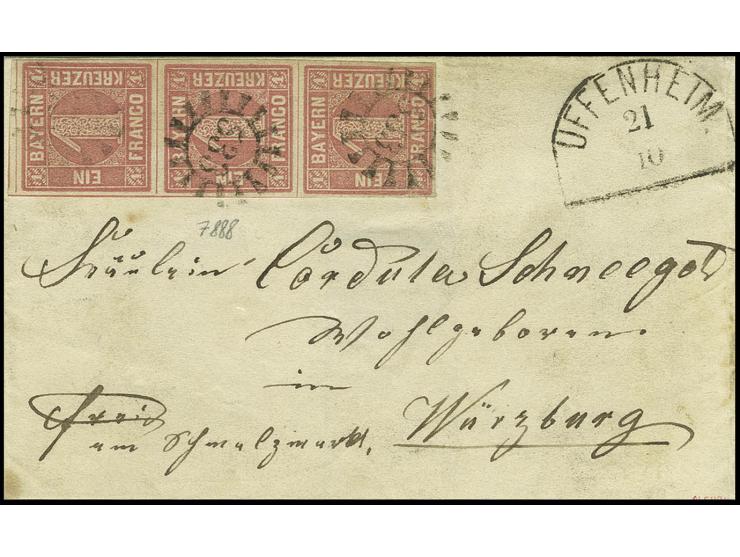 BAYERN KREUZER FRANCO EIN 1
BAYERN KREUZER FRANCO EIN 1
BAYERN KREUZER FRANCO EIN 1
UFFENHEIM
21
10
7888
Fräulein Cordula Schneegold
Wohlgeboren
in
frei Würzburg
am Schmalzmarkt,